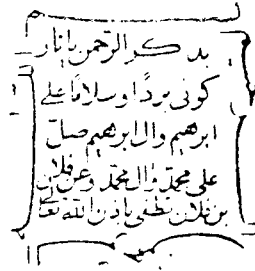 بد كر الرحمن يا نار
كونى بردًا وسلامًا على
ابرهيم وال ابرهيم صل
على محمد وال محمد وعن فلان
بن فلان تطفى باذن الله تعا